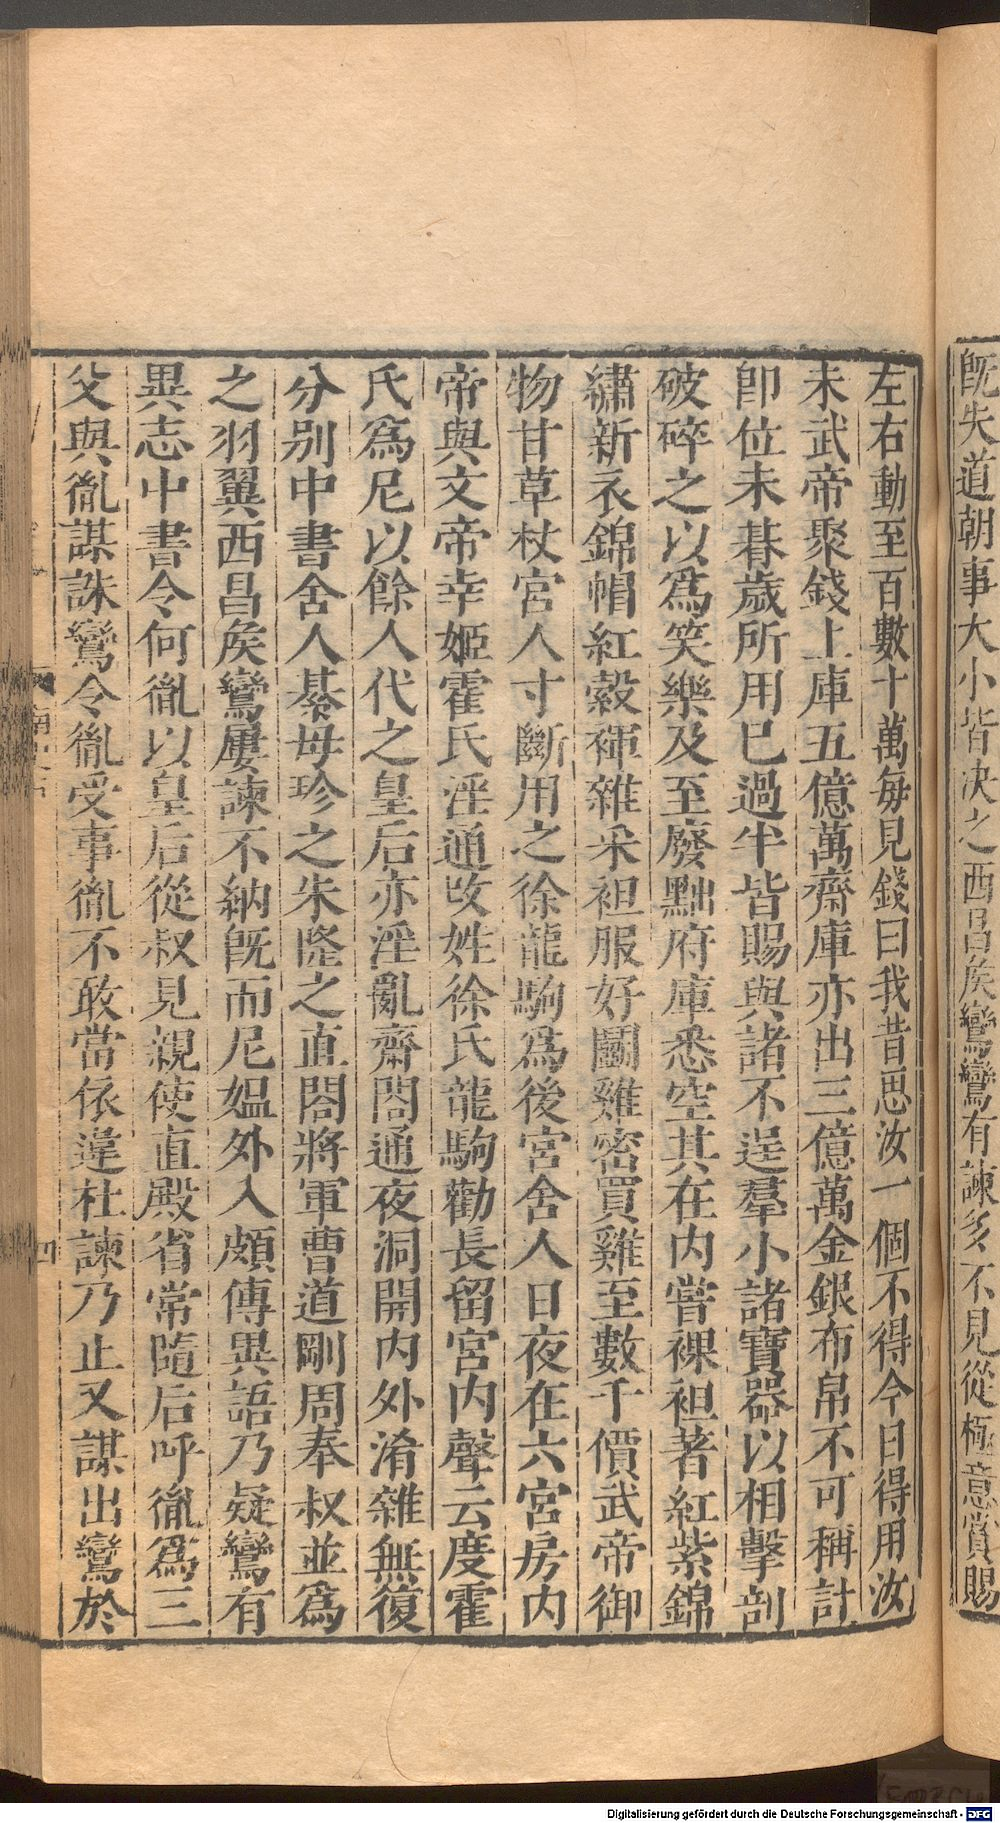 旣失道朝事大小皆决之西昌矦鸞鸞有諫多不見從極意賞賜
左右動至百數十萬每見錢曰我昔思汝一個不得今日得用汝
未武帝聚錢上庫五億萬齋庫亦出三億萬金銀布帛不可稱計
卽位未朞歲所用已過半皆賜與諸不逞羣小諸寶器以相擊剖
破碎之以爲笑樂及至廢黜府庫悉空其在內嘗裸袒著紅紫錦
繡新衣錦帽紅縠褌雜采袒服好鬭雞密買雞至數千價武帝御
物甘草杖宮人寸斷用之徐龍駒爲後宮舍人日夜在六宮房內
帝與文帝幸姬霍氏淫通改姓徐氏龍駒勸長留宮內聲云度霍
氏爲尼以餘人代之皇后亦淫亂齋閤通夜洞開內外淆雜無復
分别中書舍人綦毋珍之朱隆之直閤將軍曹道剛周奉叔並爲
之羽翼西昌矦鸞屢諫不納旣而尼媼外入頗傳異語乃疑鸞有
異志中書令何胤以皇后從叔見親使直殿省常隨后呼胤爲三
父與胤謀誅鸞令胤受事胤不敢當依違杜諫乃止又謀出鸞於
南史五
四
Digitalisierung gefördert durch die Deutsche Forschungsgemeinschaft - DFG